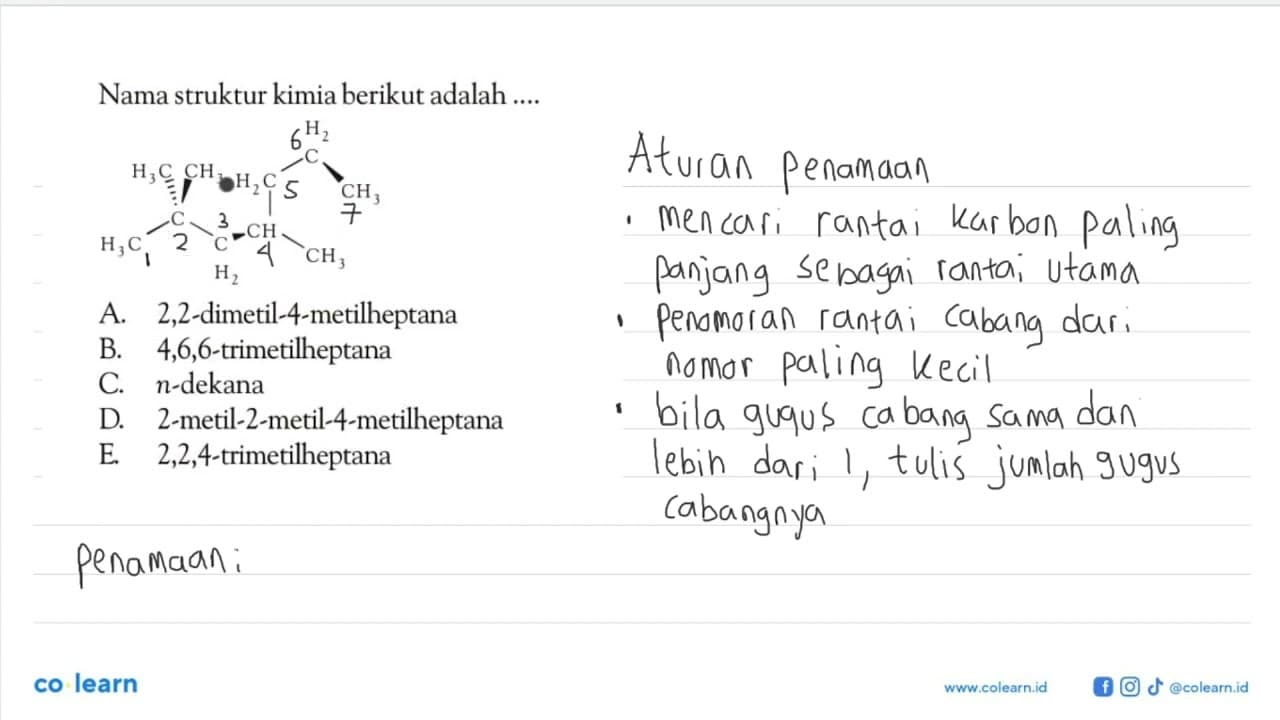 Nama struktur kimia berikut adalah ....
6 H2
C
H3C CH3 H2C 5 CH3
7
C 3 CH
H3C 1 2 C 4 CH3
H2
A. 2,2-dimetil-4-metilheptana
B. 4,6,6-trimetilheptana
C. n-dekana
D. 2-metil-2-metil-4-metilheptana
E. 2,2,4-trimetilheptana
Aturan penamaan
• mencari rantai karbon paling
panjang sebagai rantai utama
• penomoran rantai cabang dari
nomor paling kecil
• bila gugus cabang sama dan
lebih dari 1, tulis jumlah gugus
cabangnya
penamaan:
co learn
www.colearn.id
@colearn.id